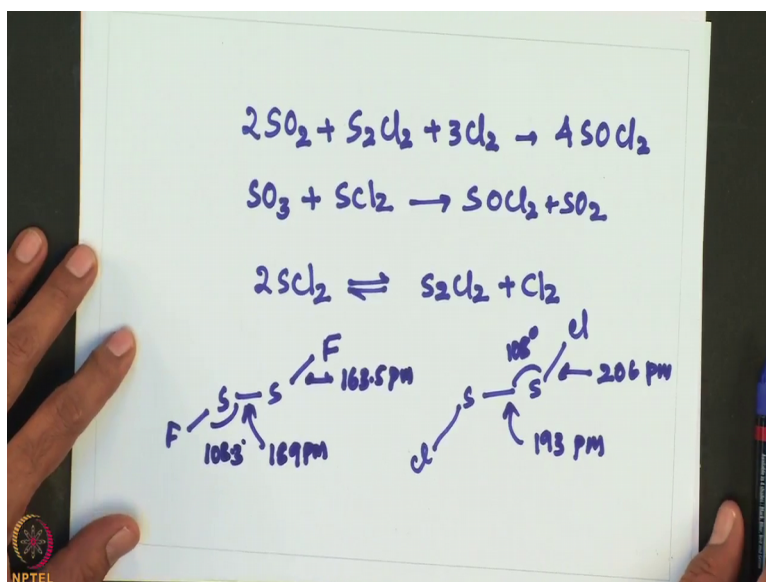 2SO₂ + S₂Cl₂ + 3Cl₂ → 4SOCl₂
SO₃ + SCl₂ → SOCl₂ + SO₂
2SCl₂ ⇌ S₂Cl₂ + Cl₂
F S — S F 163.5 pm
108.3° 189 pm
Cl S — S Cl 206 pm
108° 193 pm
NPTEL